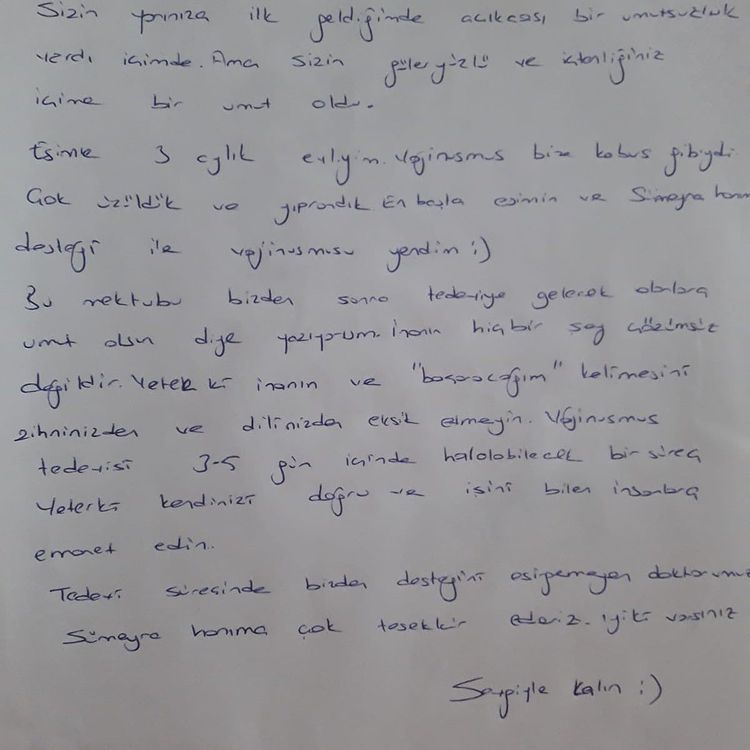 Sizin yanınıza ilk geldiğimde açıkcası bir umutsuzluk
vardı içimde. Ama sizin güler yüzlü ve içtenliğiniz
içime bir umut oldu.
Eşimle 3 aylık evliyim. Vajinusmus bize kabus gibiydi.
Çok üzüldük ve yıprandık. En başta eşimin ve Sümeyra hanım
desteği ile vajinusmusu yendim :)
Bu mektubu bizden sonra tedaviye gelecek olanlara
umut olsun diye yazıyorum. İnanın hiçbir şey çözümsüz
değildir. Yeter ki inanın ve "başaracağım" kelimesini
zihninizden ve dilinizden eksik etmeyin. Vajinusmus
tedavisi 3-5 gün içinde halolobilecek bir süreç
Yeterki kendinizi doğru ve işini bilen insanlara
emanet edin.
Tedavi süresinde bizden desteğini esirgemeyen doktorumuz
Sümeyra hanıma çok teşekkür ederiz. iyiki varsınız
Saygiyle kalın :)